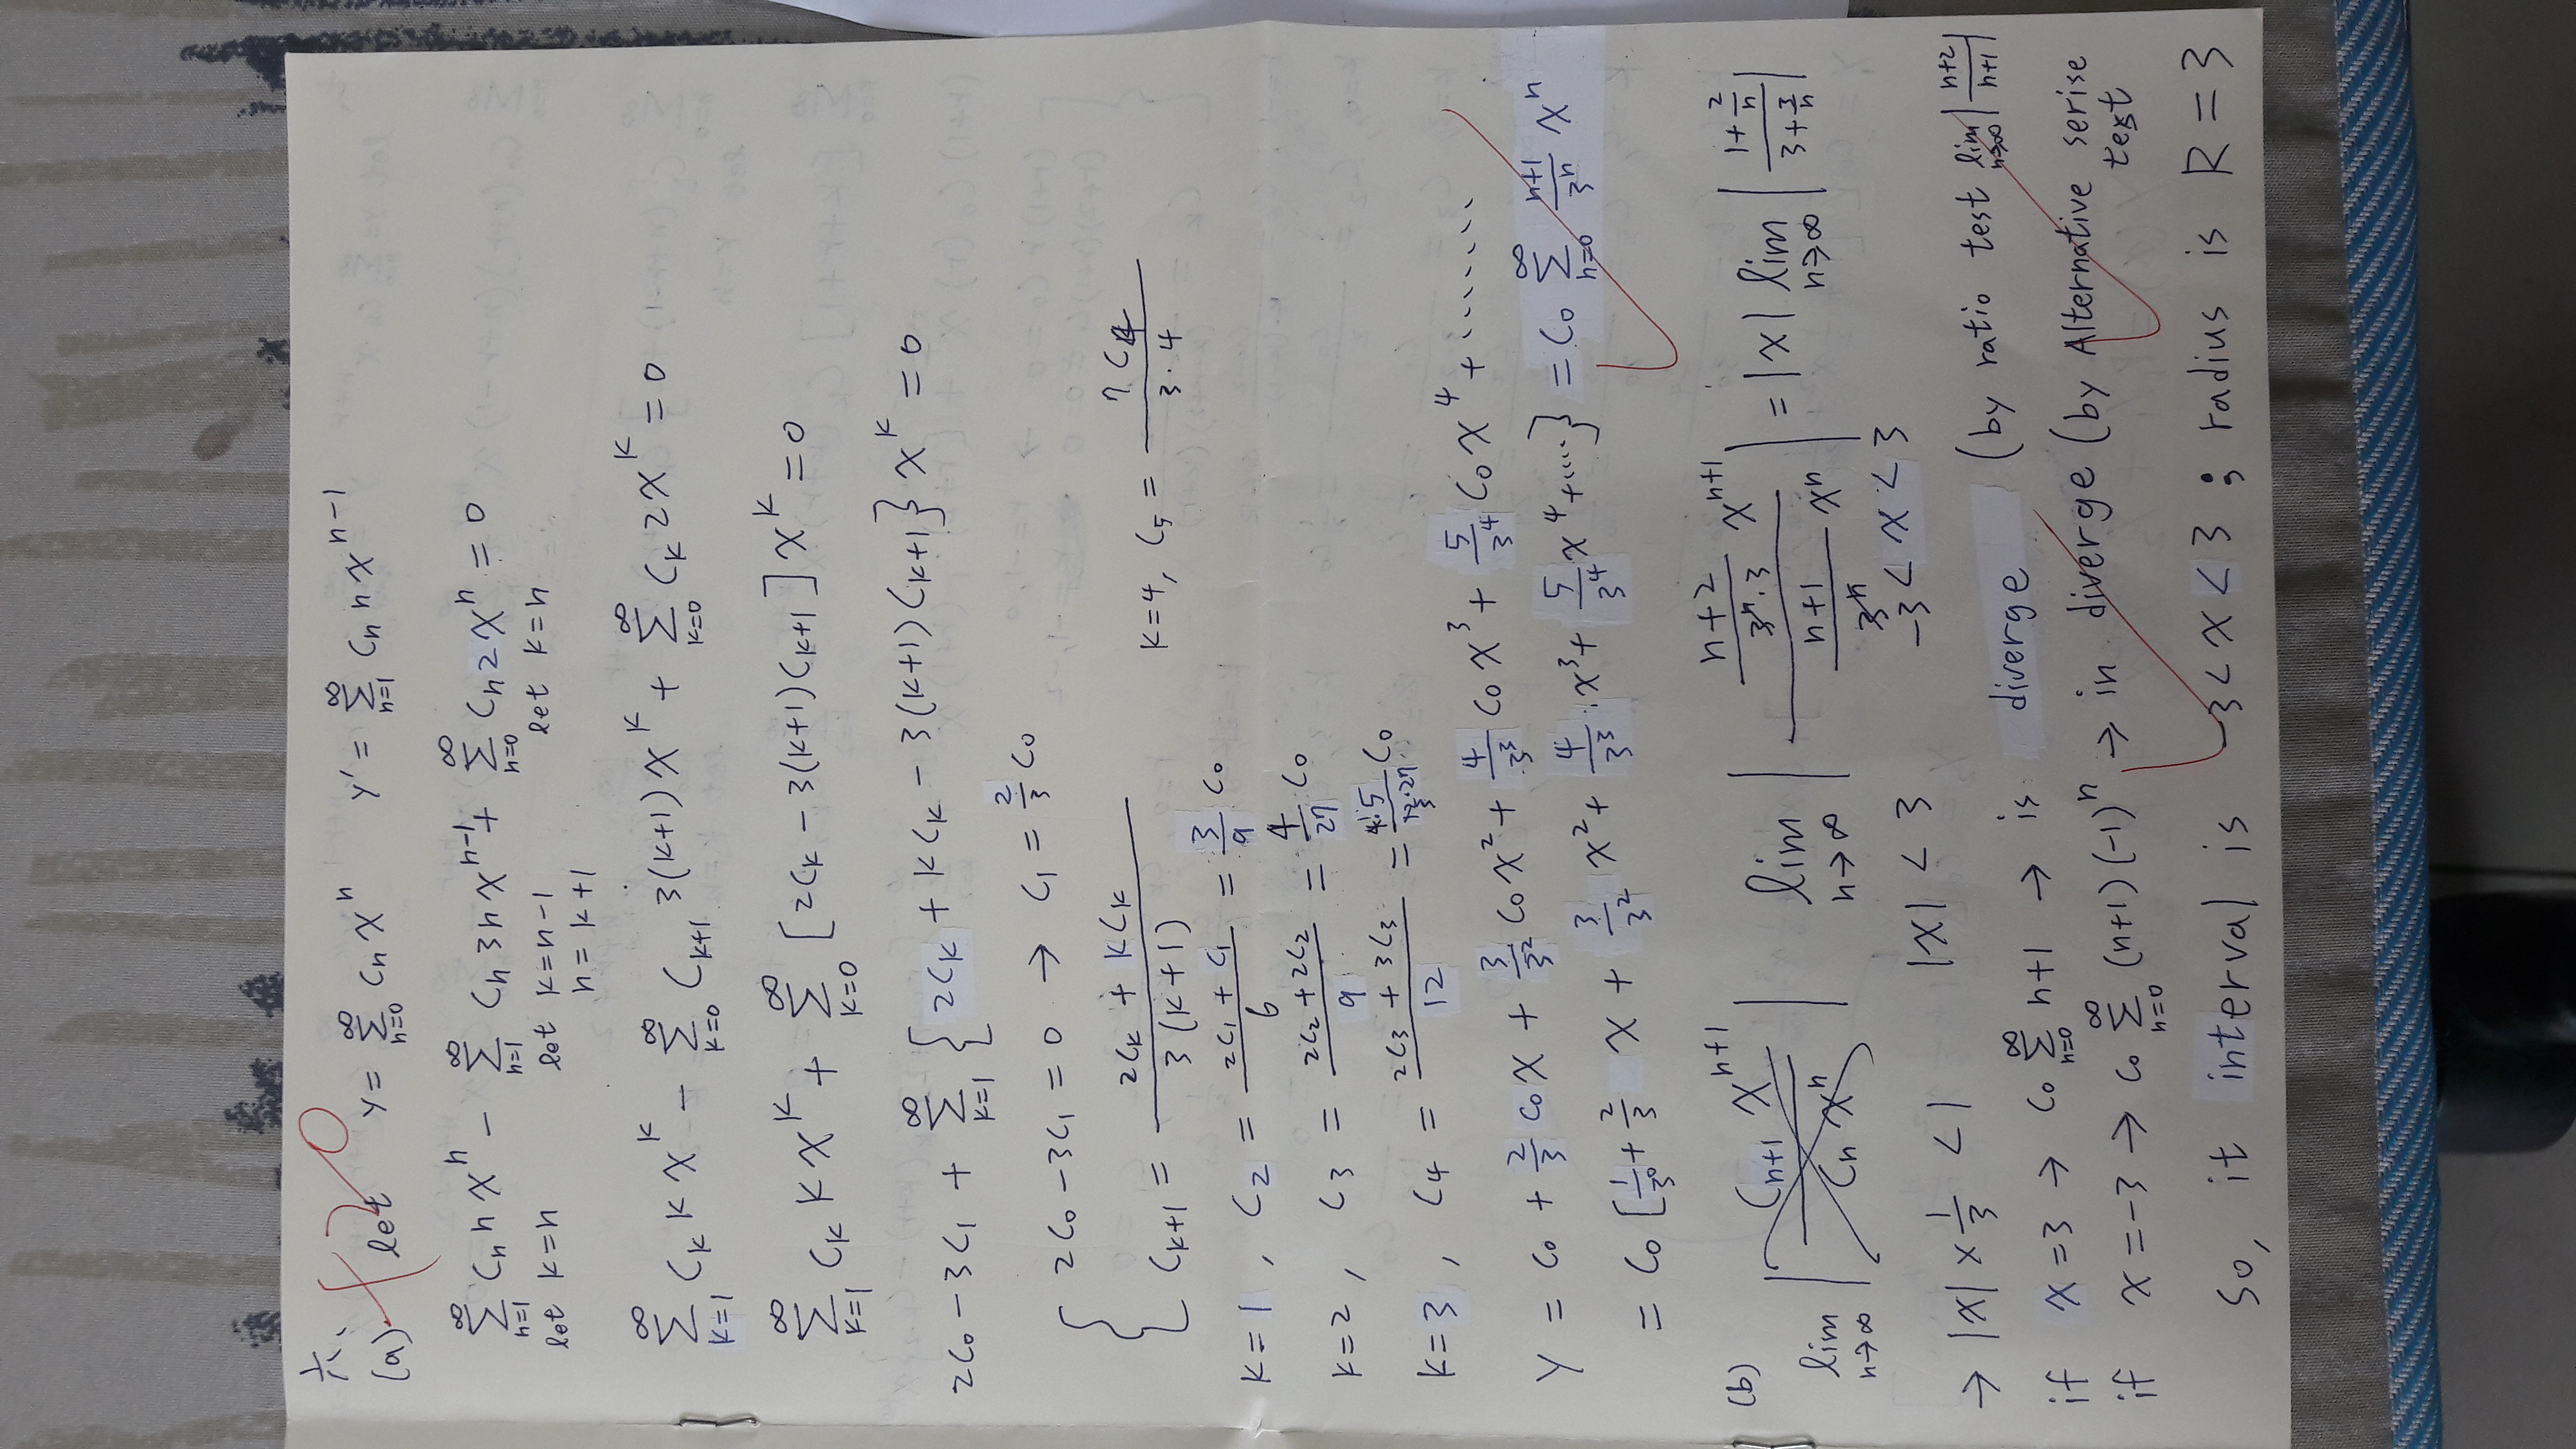 六、 +20
(a) let Y = ∑_{n=0}^{∞} Cₙ xⁿ Y' = ∑_{n=1}^{∞} Cₙ n x^{n-1}
∑_{n=1}^{∞} Cₙ n xⁿ - ∑_{n=1}^{∞} Cₙ 3n x^{n-1} + ∑_{n=0}^{∞} Cₙ 2xⁿ = 0
let k=n let k=n-1 let k=n
n=k+1
∑_{k=1}^{∞} C_k k x^k - ∑_{k=0}^{∞} C_{k+1} 3(k+1) x^k + ∑_{k=0}^{∞} C_k 2x^k = 0
∑_{k=1}^{∞} C_k k x^k + ∑_{k=0}^{∞} [2C_k - 3(k+1)C_{k+1}] x^k = 0
2C₀ - 3C₁ + ∑_{k=1}^{∞} {2C_k + kC_k - 3(k+1)C_{k+1}} x^k = 0
2C₀ - 3C₁ = 0 → C₁ = 2/3 C₀
C_{k+1} = (2C_k + kC_k)/(3(k+1)) k=4, C₅ = 7C₄/(3·4)
k=1, C₂ = (2C₁ + C₁)/6 = 3/9 C₀
k=2, C₃ = (2C₂ + 2C₂)/9 = 4/27 C₀
k=3, C₄ = (2C₃ + 3C₃)/12 = (4·5)/(12·27) C₀
Y = C₀ + 2/3 C₀x + 3/3² C₀x² + 4/3³ C₀x³ + 5/3⁴ C₀x⁴ + ········
= C₀ [1/3⁰ + 2/3 x + 3/3² x² + 4/3³ · x³ + 5/3⁴ x⁴ + ····} = C₀ ∑_{n=0}^{∞} (n+1)/3ⁿ xⁿ
(b) lim_{n→∞} |C_{n+1} x^{n+1} / Cₙ xⁿ| lim_{n→∞} |((n+2)/(3ⁿ·3) x^{n+1}) / ((n+1)/3ⁿ xⁿ)| = |x| lim_{n→∞} |(1+2/n)/(3+3/n)|
→ |x| × 1/3 < 1 |x| < 3 -3 < x < 3
if x=3 → C₀ ∑_{n=0}^{∞} n+1 → is diverge (by ratio test lim_{n→∞} |(n+2)/(n+1)|
if x=-3 → C₀ ∑_{n=0}^{∞} (n+1)(-1)ⁿ → in diverge (by Alternative serise
test
So, it interval is -3<x<3 ; radius is R=3